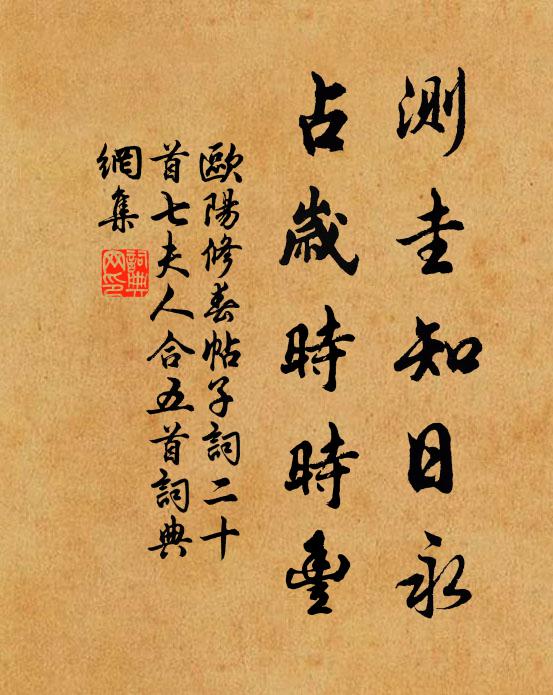 測圭知日永
占歲時時豐
歐陽修春帖子詞二十
首七夫人合五首詞典
網集
詞典網印